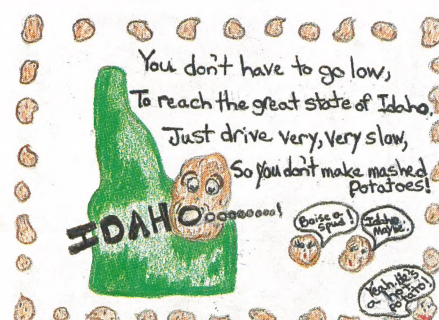 You don't have to go low,
To reach the great state of Idaho.
Just drive very, very slow,
So you don't make mashed
potatoes!
IDAHOooooooooo!
Boise a
spud!
Idaho,
Maybe.
Yeah, He's
a hot
potato!